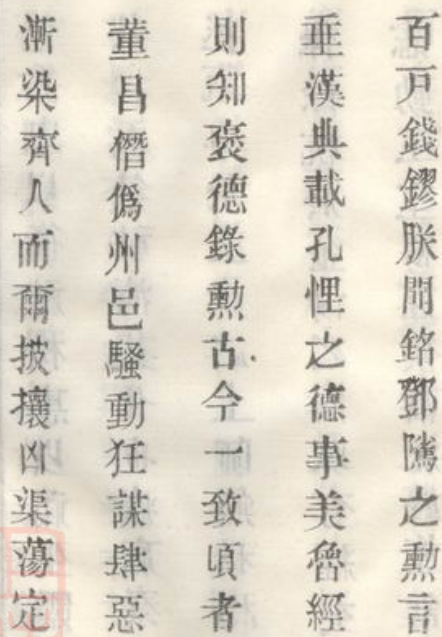 百戸錢鏐朕聞銘鄧隲之勲言
垂漢典載孔悝之德事美魯經
則知褒德錄勲古今一致頃者
董昌僭僞州邑騷動狂謀肆惡
漸染齊人而爾披攘凶渠蕩定